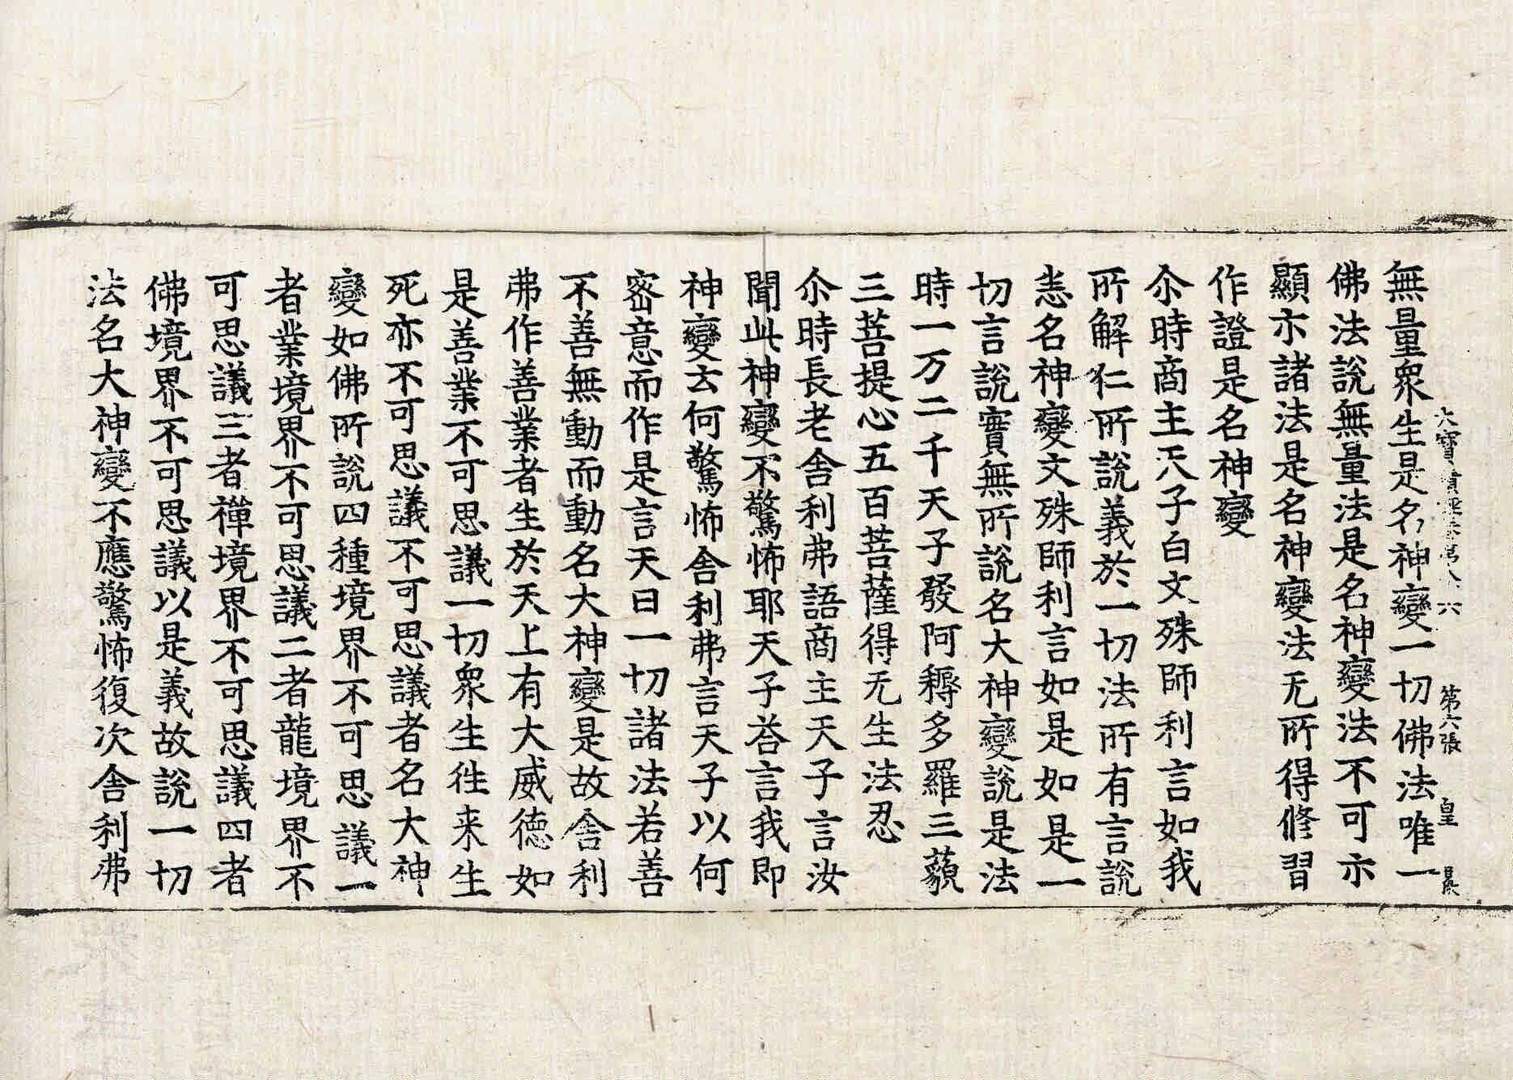 大寶積經卷第八六 第六張 皇
無量衆生是名神變一切佛法唯一
佛法說無量法是名神變法不可示
顯示諸法是名神變法无所得修習
作證是名神變
尒時商主天子白文殊師利言如我
所解仁所說義於一切法所有言說
恙名神變文殊師利言如是如是一
切言說實無所說名大神變說是法
時一万二千天子發阿耨多羅三藐
三菩提心五百菩薩得无生法忍
尒時長老舍利弗語商主天子言汝
聞此神變不驚怖耶天子荅言我即
神變云何驚怖舍利弗言天子以何
密意而作是言天曰一切諸法若善
不善無動而動名大神變是故舍利
弗作善業者生於天上有大威德如
是善業不可思議一切衆生徃来生
死亦不可思議不可思議者名大神
變如佛所說四種境界不可思議一
者業境界不可思議二者龍境界不
可思議三者禪境界不可思議四者
佛境界不可思議以是義故說一切
法名大神變不應驚怖復次舍利弗